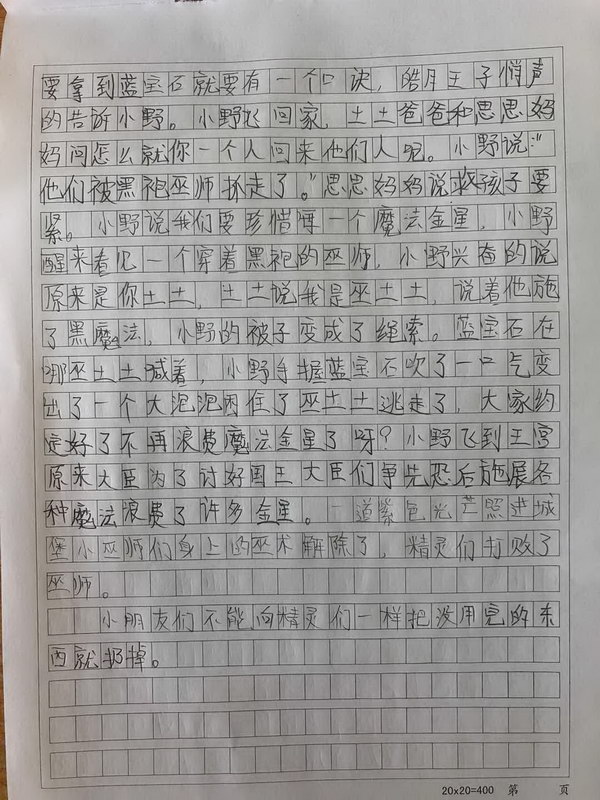 要拿到蓝宝石就要有一个口诀，皓月王子悄声
的告诉小野。小野飞回家，土土爸爸和思思妈
妈问怎么就你一个人回来他们人呢。小野说："
他们被黑袍巫师抓走了。"思思妈妈说救孩子要
紧。小野说我们要珍惜每一个魔法金星，小野
醒来看见一个穿着黑袍的巫师，小野兴奋的说
原来是你土土，土土说我是巫土土，说着他施
了黑魔法，小野的被子变成了绳索。蓝宝石在
哪巫土土喊着，小野手握蓝宝石吹了一口气变
出了一个大泡泡困住了巫土土逃走了，大家约
定好了不再浪费魔法金星了呀？小野飞到王宫
原来大臣为了讨好国王大臣们争先恐后施展各
种魔法浪费了许多金星。一道紫色光芒照进城
堡小巫师们身上的巫术解除了，精灵们打败了
巫师。
小朋友们不能向精灵们一样把没用完的东
西就扔掉。
20x20=400 第 页